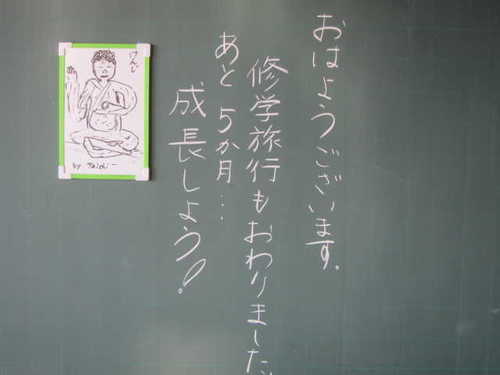 おはようございます。
修学旅行もおわりました。
あと5か月…
成長しよう!
by Taichi